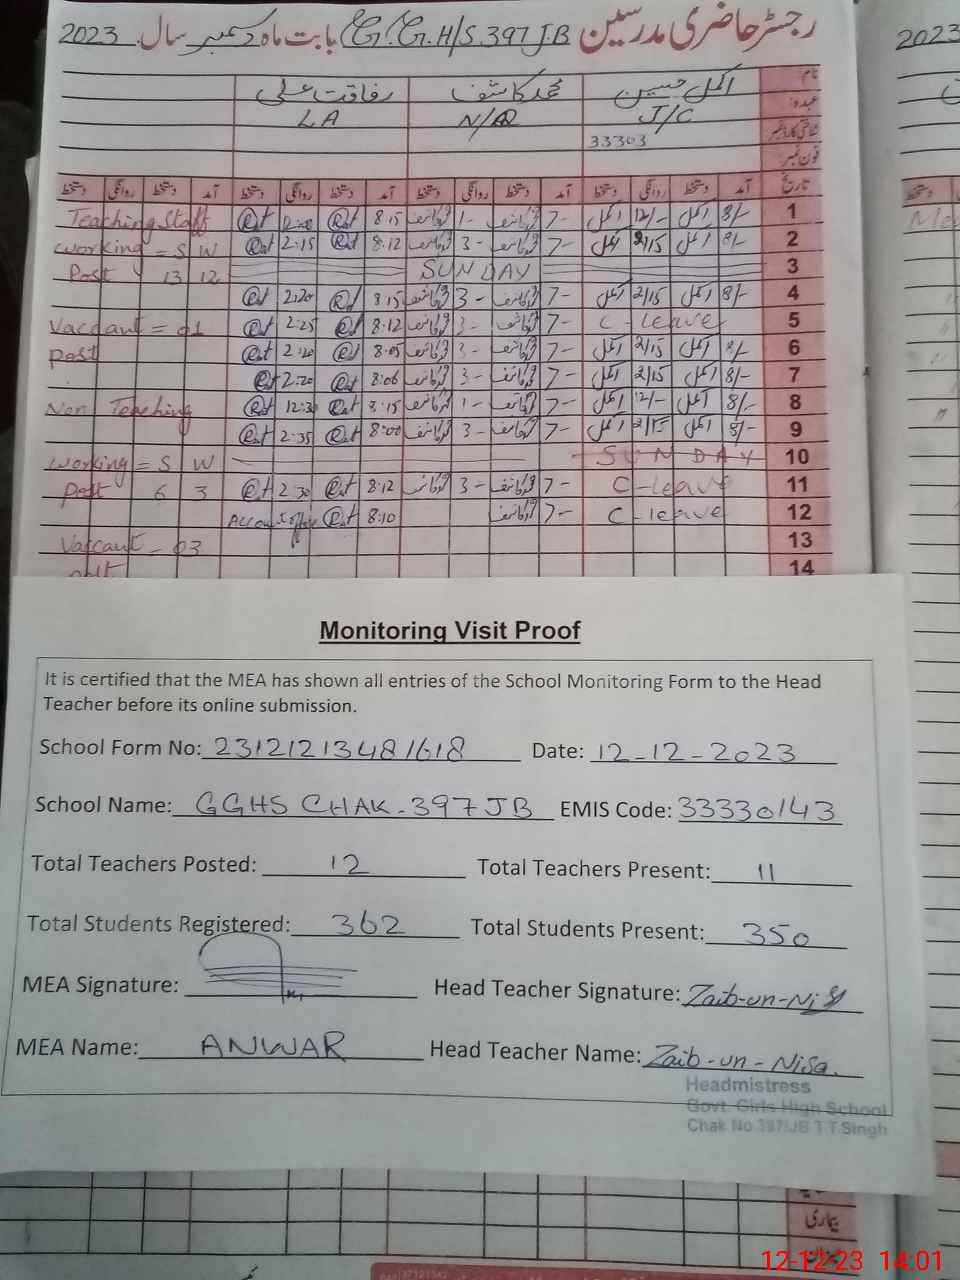 رجسٹر حاضری مدرسین G.G.H/S.397 J.B بابت ماہ دسمبر سال 2023
2023
نام: اکمل حسین محمد کاشف رفاقت علی
عہدہ: J/C N/Q LA
شناختی کارڈ نمبر 33303
فون نمبر:
تاریخ آمد دستخط روانگی دستخط آمد دستخط روانگی دستخط آمد دستخط روانگی دستخط آمد دستخط روانگی دستخط
1 8/- اکمل 12/- اکمل 7- 1- 8.15 Teaching Staff
2 8/- اکمل 2/15 اکمل 7- 3- 8.12 2:15 Working = S W
3 SUNDAY Post 13 12
4 8/- اکمل 2/15 اکمل 7- 3- 8.15 2:20
5 C-leave 7- 3- 8.12 2:25 Vaccant = 01
6 8/- اکمل 2/15 اکمل 7- 3- 8.05 2:20 post
7 8/- اکمل 2/15 اکمل 7- 3- 8:06 2:20
8 8/- اکمل 12/- اکمل 7- 1- 8:15 12:30 Non Teaching
9 8/- اکمل 2/15 اکمل 7- 3- 8:00 2:35
10 SUNDAY Working = S W
11 C-leave 7- 3- 8:12 2:30 Post 6 3
12 C-leave 7- 8:10 Account office
13 Vaccant - 03
14
Monitoring Visit Proof
It is certified that the MEA has shown all entries of the School Monitoring Form to the Head
Teacher before its online submission.
School Form No: 23121213481618 Date: 12-12-2023
School Name: GGHS CHAK-397 JB EMIS Code: 33330143
Total Teachers Posted: 12 Total Teachers Present: 11
Total Students Registered: 362 Total Students Present: 350
MEA Signature: Head Teacher Signature: Zaib-un-Nisa
MEA Name: ANWAR Head Teacher Name: Zaib-un-Nisa.
Headmistress
Govt. Girls High School
Chak No.397/JB T.T.Singh
بیماری
12-12-23 14:01